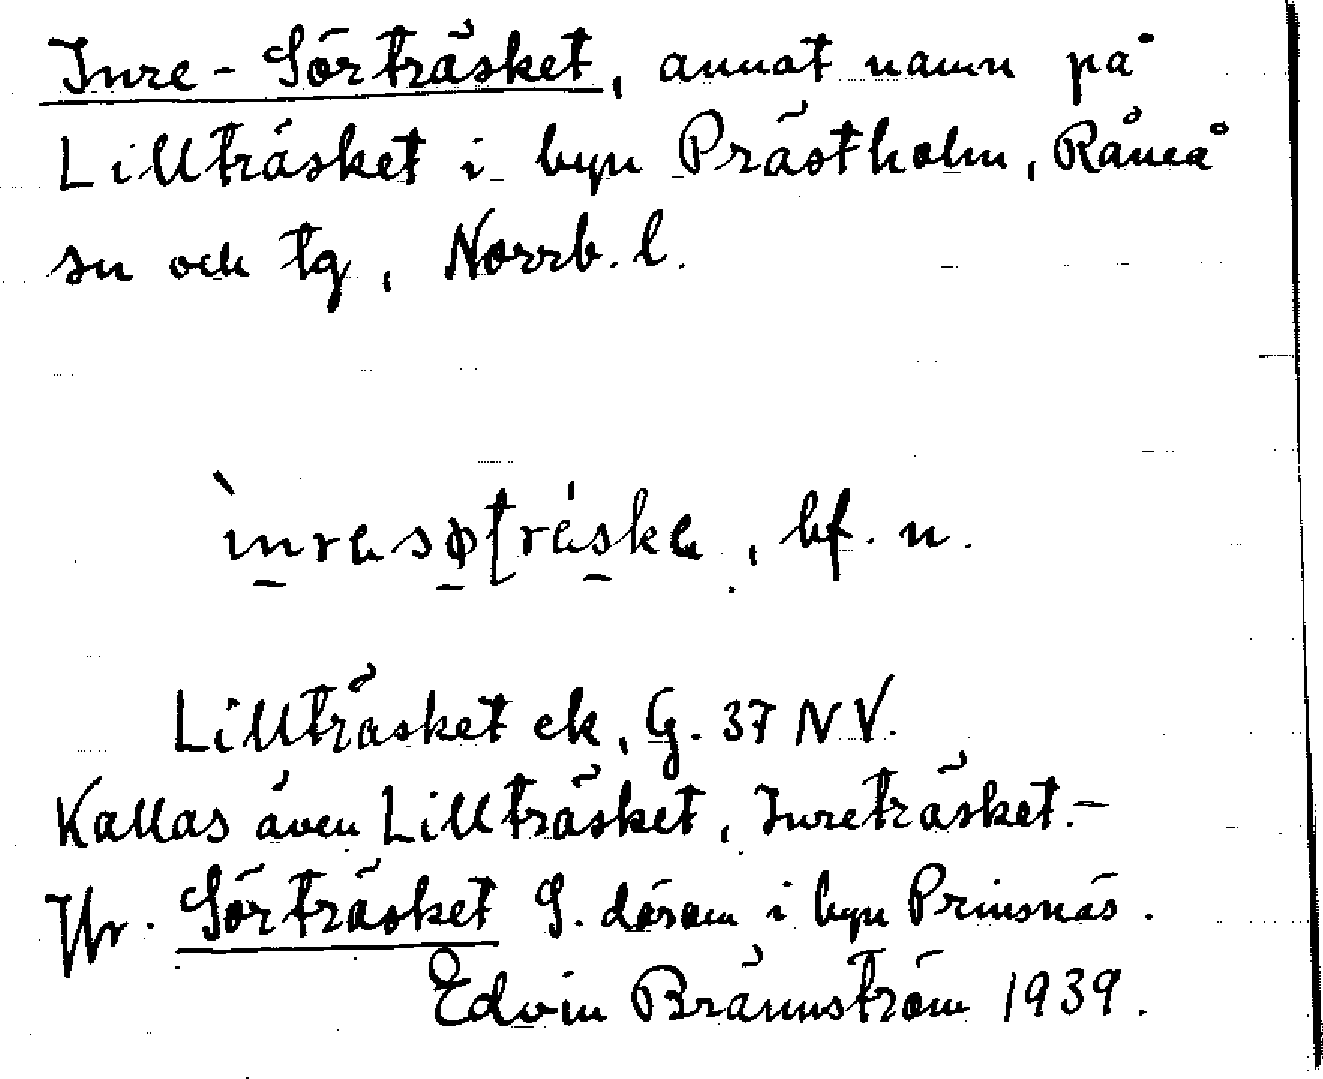 Inre-Sörträsket, annat namn på
Lillträsket i byn Prästholm, Råneå
sn och tg, Norrb. l.
bf. n.
Lillträsket ek, G. 37 NV.
Kallas även Lillträsket, Inreträsket.-
Jfr. Sörträsket S. därom i byn Prinsnäs.
Edvin Brännström 1939.